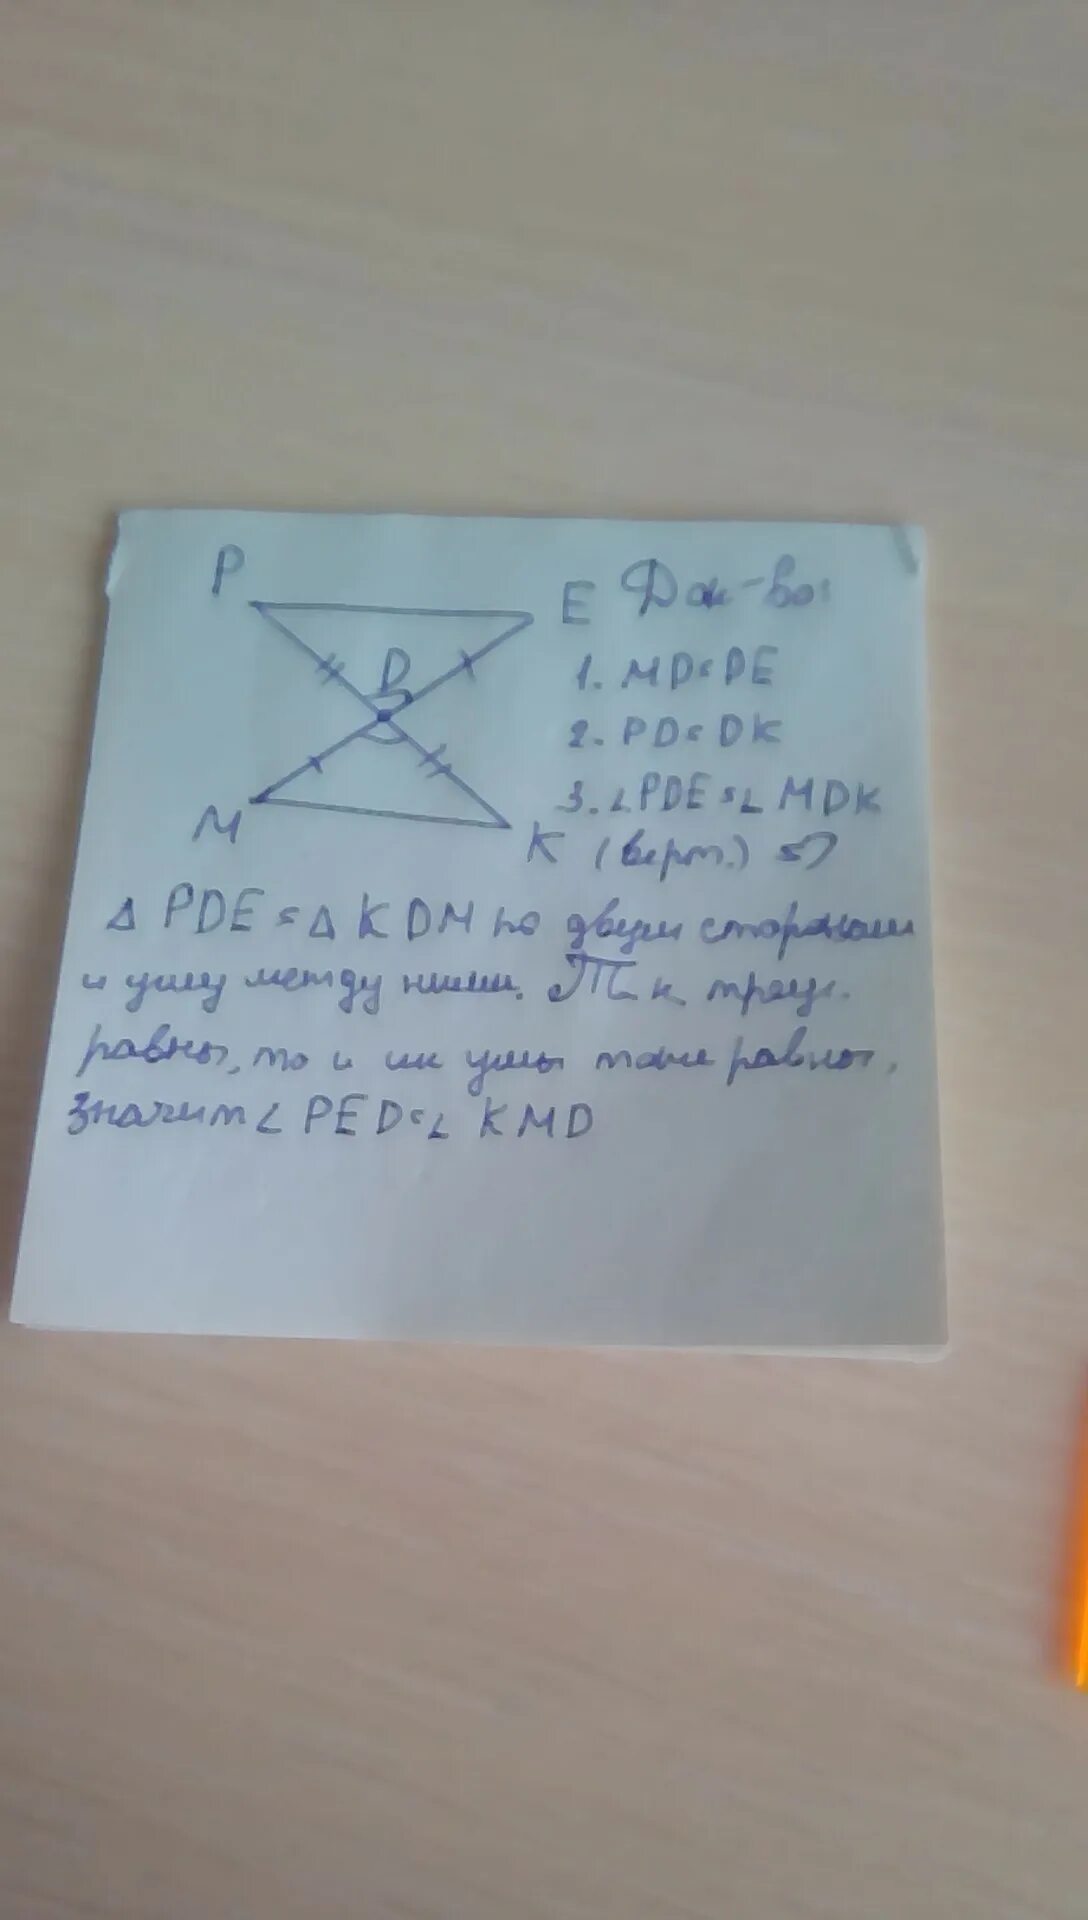 P
E
D
M
K
Док-во:
1. MD=DE
2. PD=DK
3. ∠PDE=∠MDK
(верт.) =>
Δ PDE = Δ KDM по двум сторонам
и углу между ними. Т.к. треуг.
равны, то и их углы тоже равны,
значит ∠PED=∠KMD